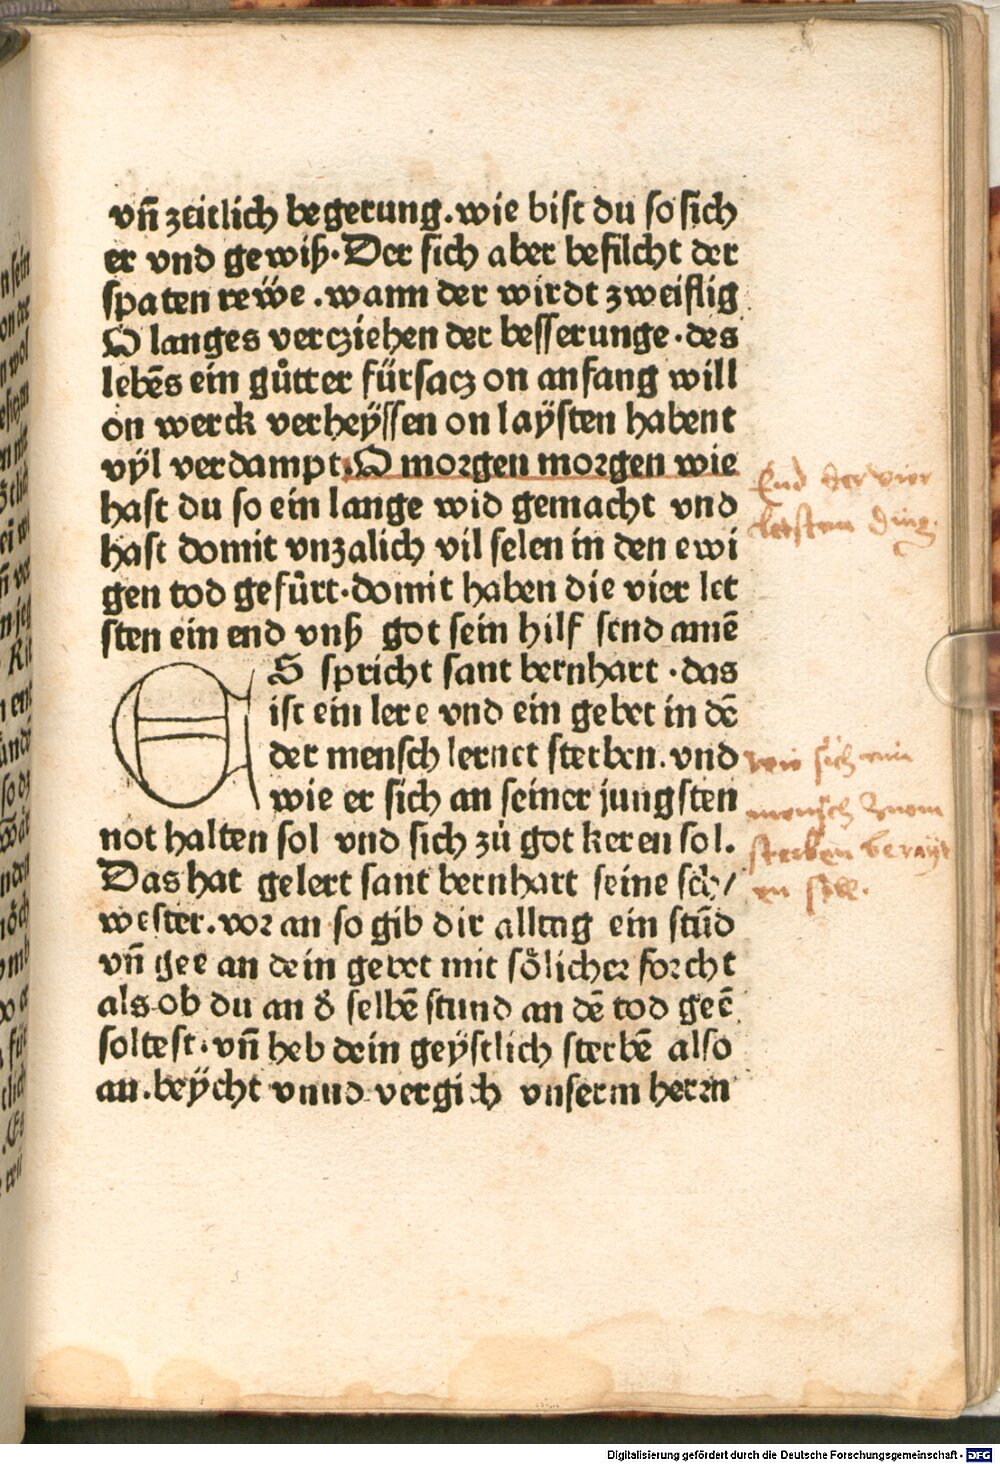 vn̄ zeitlich begerung. wie bist du so sich
er vnd gewiß. Der sich aber befilcht der
spaten rewe. wann der wirdt zweiflig
O langes vercziehen der besserunge. des
lebēs ein gůtter fürsacz on anfang will
on werck verheÿssen on laÿsten habent
vÿl verdampt. O morgen morgen wie
hast du so ein lange wid gemacht vnd
hast domit vnzalich vil selen in den ewi
gen tod gefůrt. domit haben die vier let
sten ein end vnß got sein hilf send amē
ES spricht sant bernhart. das
ist ein lere vnd ein gebet in dē
der mensch lernet sterben. vnd
wie er sich an seiner jungsten
not halten sol vnd sich zů got keren sol.
Das hat gelert sant bernhart seine sch/
wester. vor an so gib dir alltag ein stūd
vn̄ gee an dein gebet mit sőlicher forcht
als ob du an d̓ selbē stund an dē tod geē
soltest. vn̄ heb dein geÿstlich sterbē also
an. beÿcht vnnd vergich vnserm herrn
End der vier
letsten ding.
wie sich ein
mensch zuom
sterben berayt
en soll.
Digitalisierung gefördert durch die Deutsche Forschungsgemeinschaft - DFG